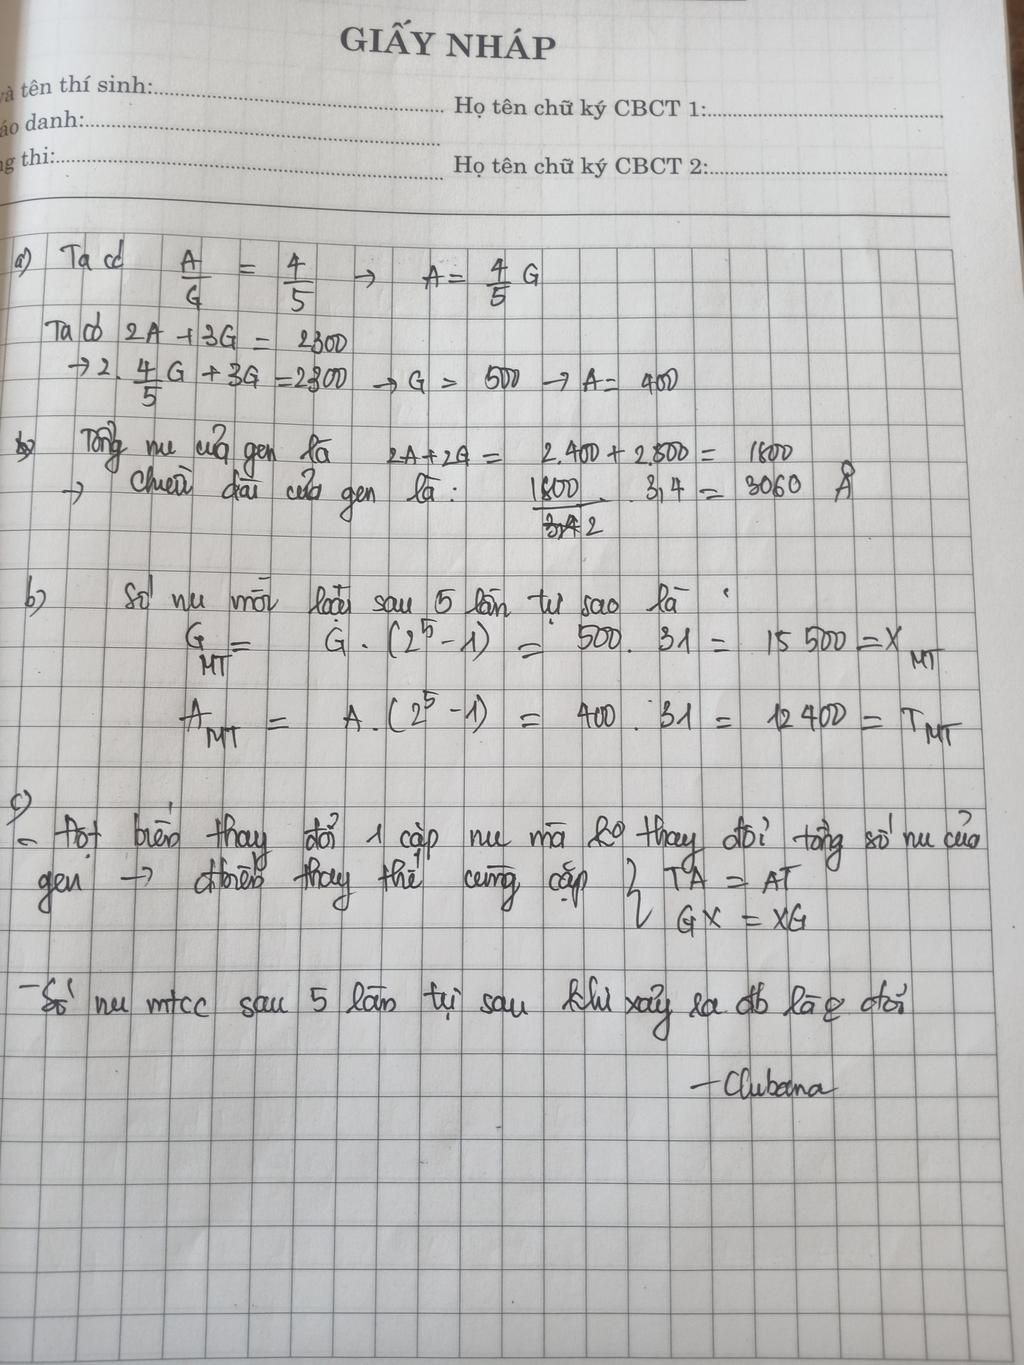 GIẤY NHÁP
và tên thí sinh:
Họ tên chữ ký CBCT 1:
áo danh:
ng thi:
Họ tên chữ ký CBCT 2:
a) Ta có A/G = 4/5 → A = 4/5 G
Ta có 2A + 3G = 2300
→ 2. 4/5 G + 3G = 2300 → G = 500 → A = 400
Tổng nu của gen là 2A + 2G = 2.400 + 2.500 = 1800
→ Chiều dài của gen là: 1800/2 . 3,4 = 3060 Å
b) Số nu mỗi loại sau 5 lần tự sao là :
G MT = G . (2^5 - 1) = 500 . 31 = 15 500 = X MT
A MT = A . (2^5 - 1) = 400 . 31 = 12 400 = T MT
c)
- Đột biến thay đổi 1 cặp nu mà ko thay đổi tổng số nu của
gen → đbiến thay thế cùng cặp } TA = AT
GX = XG
- Số nu mtcc sau 5 lần tự sau khi xảy ra đb là đổi